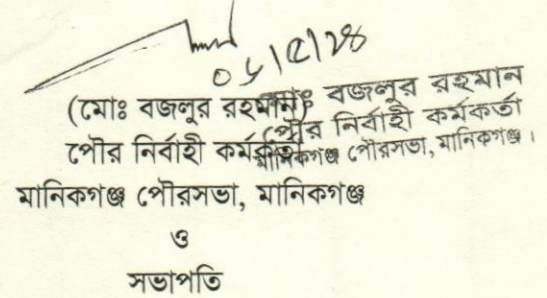 (মোঃ বজলুর রহমান)
পৌর নির্বাহী কর্মকর্তা
মানিকগঞ্জ পৌরসভা, মানিকগঞ্জ
ও
সভাপতি
বজলুর রহমান
পৌর নির্বাহী কর্মকর্তা
মানিকগঞ্জ পৌরসভা, মানিকগঞ্জ।